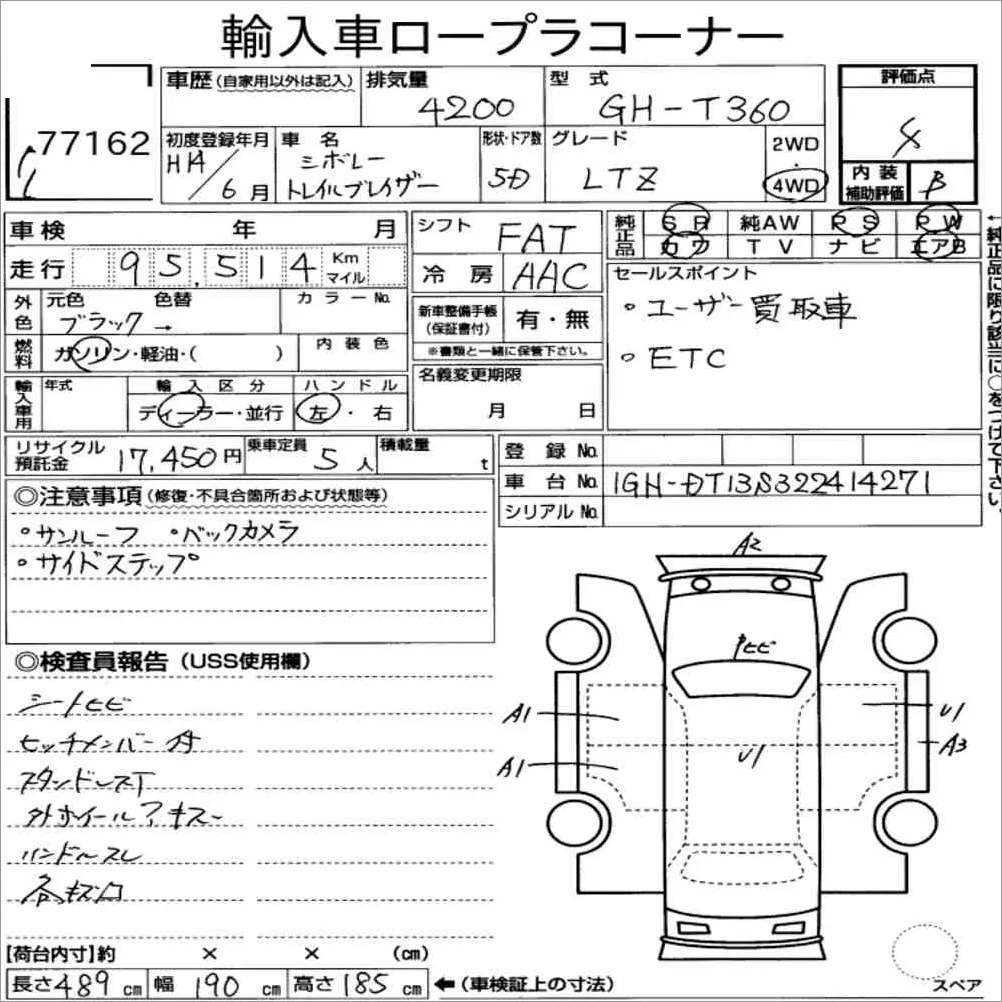 輸入車ロープラコーナー
77162
車歴(自家用以外は記入)
排気量
4200
型式
GH-T360
評価点
4
初度登録年月
H14/6月
車名
シボレー
トレイルブレイザー
形状・ドア数
5D
グレード
LTZ
2WD
・
4WD
内装
補助評価
B
車検 年 月
走行 95,514 Km
マイル
外色
元色 色替
ブラック →
カラーNo.
燃料
ガソリン・軽油・( )
内装色
輸入車用
年式
輸入区分
ディーラー・並行
ハンドル
左・右
シフト
FAT
冷房
AAC
新車整備手帳
(保証書付)
有・無
※書類と一緒に保管下さい。
名義変更期限
月 日
純正品
SR 純AW PS PW
カワ TV ナビ エアB
←純正品に限り該当に○をつけて下さい。
セールスポイント
・ユーザー買取車
・ETC
リサイクル
預託金
17,450円
乗車定員
5人
積載量
t
登録No.
車台No.
1GH-DT13S322414271
シリアルNo.
◎注意事項(修復・不具合箇所および状態等)
・サンルーフ ・バックカメラ
・サイドステップ
◎検査員報告(USS使用欄)
シートヒビ
ヒッチメンバー付
ハンドルスレ
A2
ヒビ
A1
A1
U1
U1
A3
[荷台内寸]約 × × (cm)
長さ489cm
幅190cm
高さ185cm
←(車検証上の寸法)
スペア